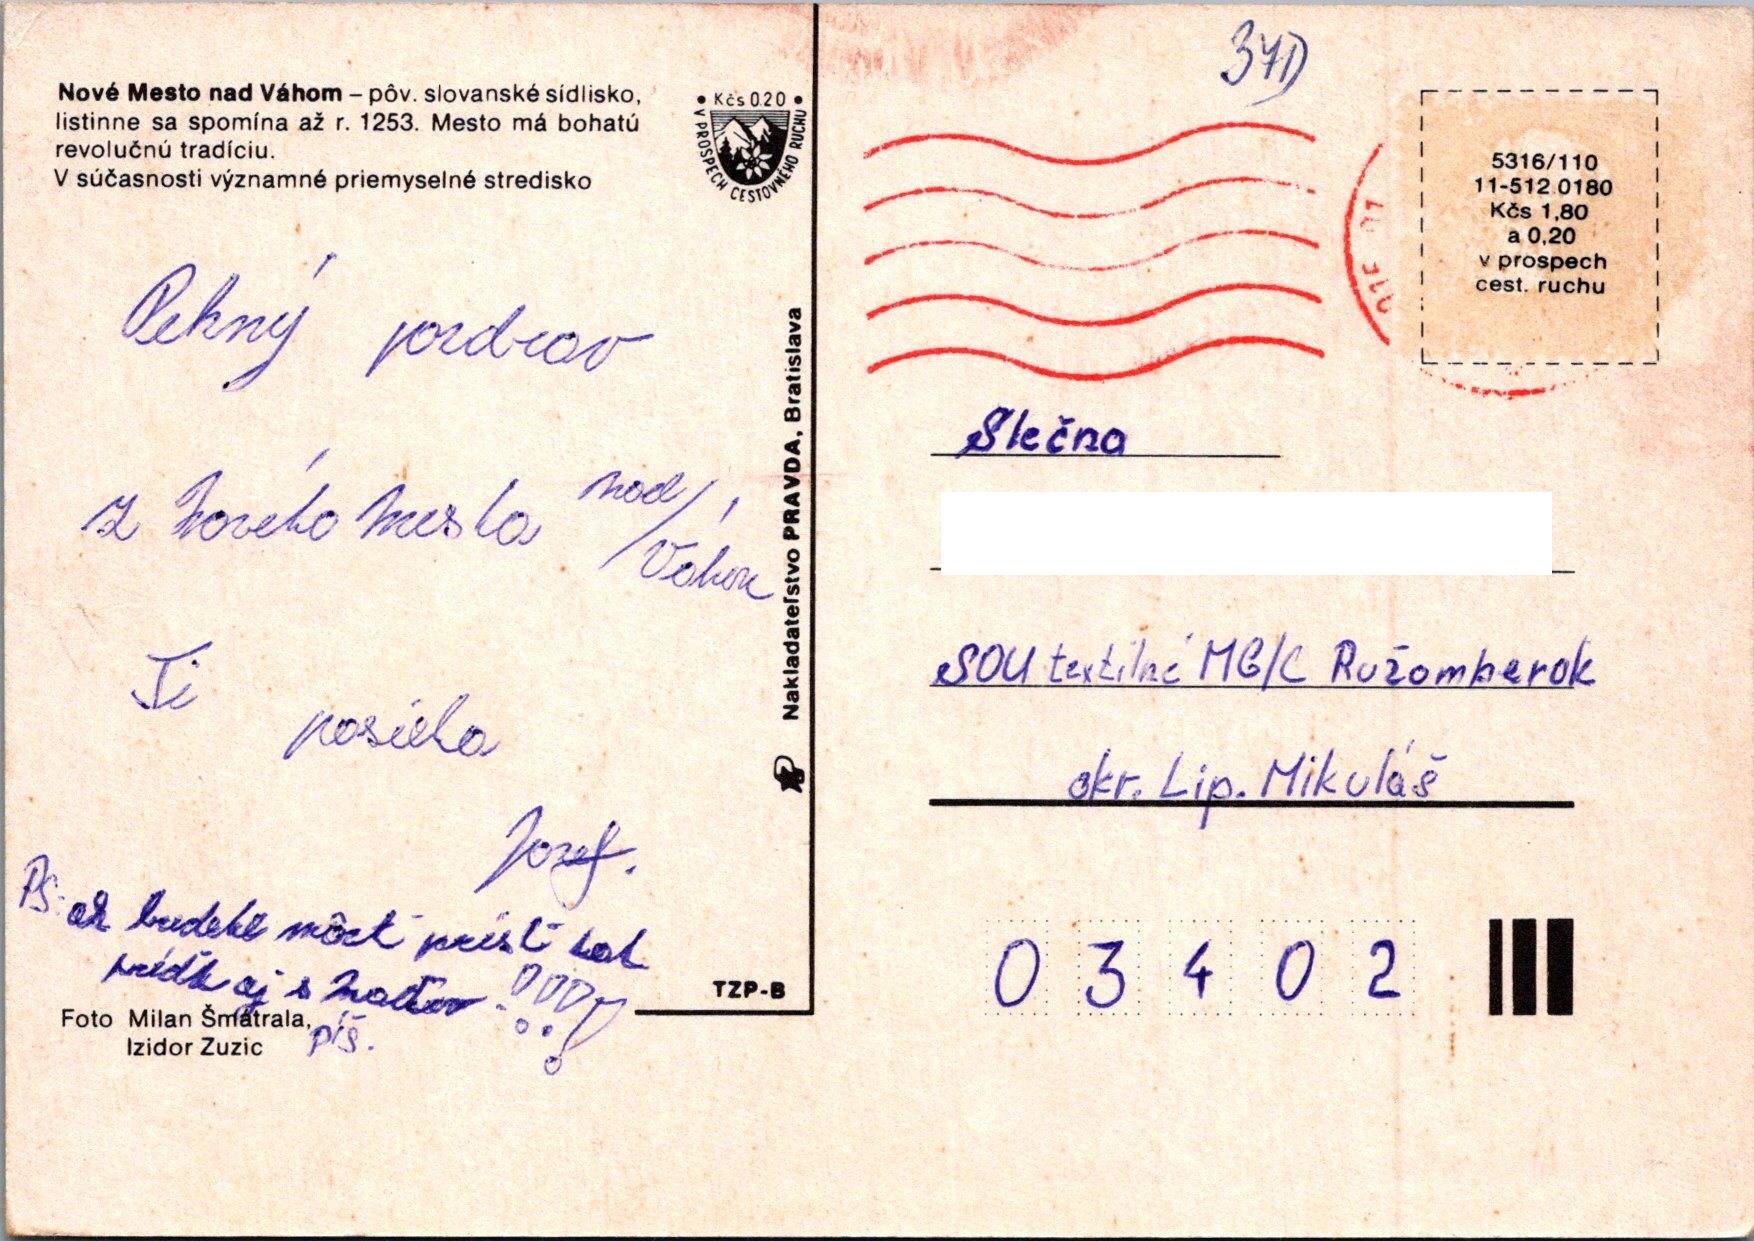 Nové Mesto nad Váhom – pôv. slovanské sídlisko,
listinne sa spomína až r. 1253. Mesto má bohatú
revolučnú tradíciu.
V súčasnosti významné priemyselné stredisko
• Kčs 0.20 •
V PROSPECH CESTOVNÉHO RUCHU
Pekný pozdrav
z Nového Mesta nad/
Váhom
Ti
posiela
Jozef.
PS: ak budete môcť prísť tak
príďte aj s !!!
píš.
Foto Milan Šmatrala,
Izidor Zuzic
TZP-B
Nakladateľstvo PRAVDA, Bratislava
37D
5316/110
11-512 0180
Kčs 1,80
a 0,20
v prospech
cest. ruchu
Slečna
SOU textilné MG/C Ružomberok
okr. Lip. Mikuláš
03402